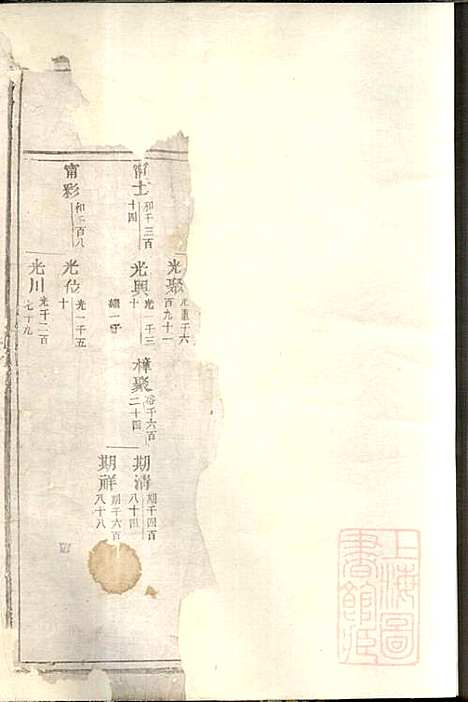 甯士
和千三百
十四
甯彩
和千百八
光聚
千六
百九十一
光興
光一千三
十
繼一子
光位
光一千五
十
光川
光千二百
七十九
樟聚
千六百
二十四
期清
期千四百
八十四
期祥
期千六百
八十八
上海圖
書館藏